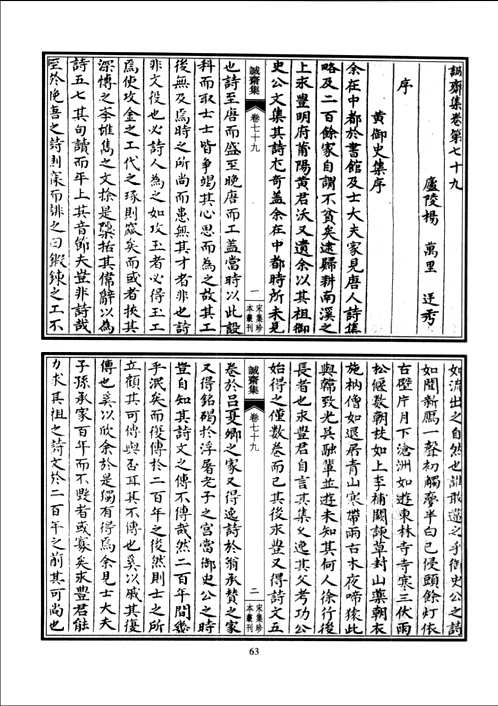 誠齋集卷第七十九
廬陵楊 萬里 廷秀
序
黃御史集序
余在中都於書館及士大夫家見唐人詩集
略及二百餘家自謂不貧矣逮歸耕南溪之
上永豐明府莆陽黃君沃又遺余以其祖御
史公文集其詩尤奇蓋余在中都時所未見
誠齋集 卷七十九 一 宋集珍本叢刊
也詩至唐而盛至晚唐而工蓋當時以此設
科而取士士皆爭竭其心思而為之故其工
後無及焉時之所尚而患無其才者非也詩
非文役也必詩人為之如攻玉者必得玉工
焉使攻金之工代之琢則窳矣而或者挾其
深博之學雄雋之文於是櫽括其偉辭以為
詩五七其句讀而平上其音節夫豈非詩哉
至於晚唐之詩則寱而誹之曰鍛鍊之工不
如流出之自然也誰敢違之乎御史公之詩
如聞新鴈一聲初觸夢半白已侵頭餘燈依
古壁片月下滄洲如遊東林寺寺寒三伏雨
松偃數朝枝如上李補闕諫草封山藥朝衣
施衲僧如退居青山寒帶雨古木夜啼猿此
與韓致光吳融輩並遊未知其何人徐行後
長者也永豐君自言其集久逸其父考功公
始得之僅數卷而已其後永豐又得詩文五
誠齋集 卷七十九 二 宋集珍本叢刊
卷於呂夏卿之家又得逸詩於翁承贊之家
又得銘碣於浮屠老子之宮當御史公之時
豈自知其詩文之傳不傳哉然二百年間幾
乎泯矣而復傳於二百年之後然則士之所
立顧其可傳與否耳其不傳也奚以戚其復
傳也奚以欣余於是獨有得焉余見士大夫
子孫承家百年而不毀者或寡矣永豐君能
力求其祖之詩文於二百年之前其可尚也
63